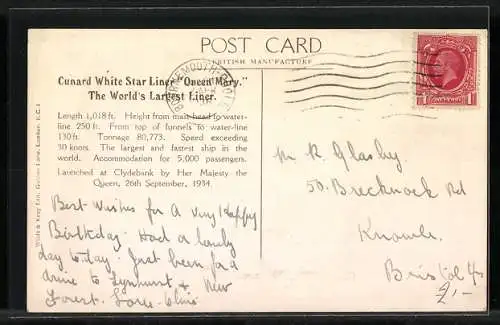 POST CARD
BRITISH MANUFACTURE
Cunard White Star Liner "Queen Mary."
The World's Largest Liner.
Length 1,018 ft. Height from mast head to water-
line 250 ft. From top of funnels to water-line
130 ft. Tonnage 80,773. Speed exceeding
30 knots. The largest and fastest ship in the
world. Accommodation for 5,000 passengers.
Launched at Clydebank by Her Majesty the
Queen, 26th September, 1934.
Best Wishes for A Very Happy
Birthday. Had a lovely
day to-day. Just been for a
drive to Lyndhurst & New
Forest. Love
Mr R. Glasby
50. Brecknock Rd
Knowle.
Bristol 4
2/-
BOURNEMOUTH-POOLE
1